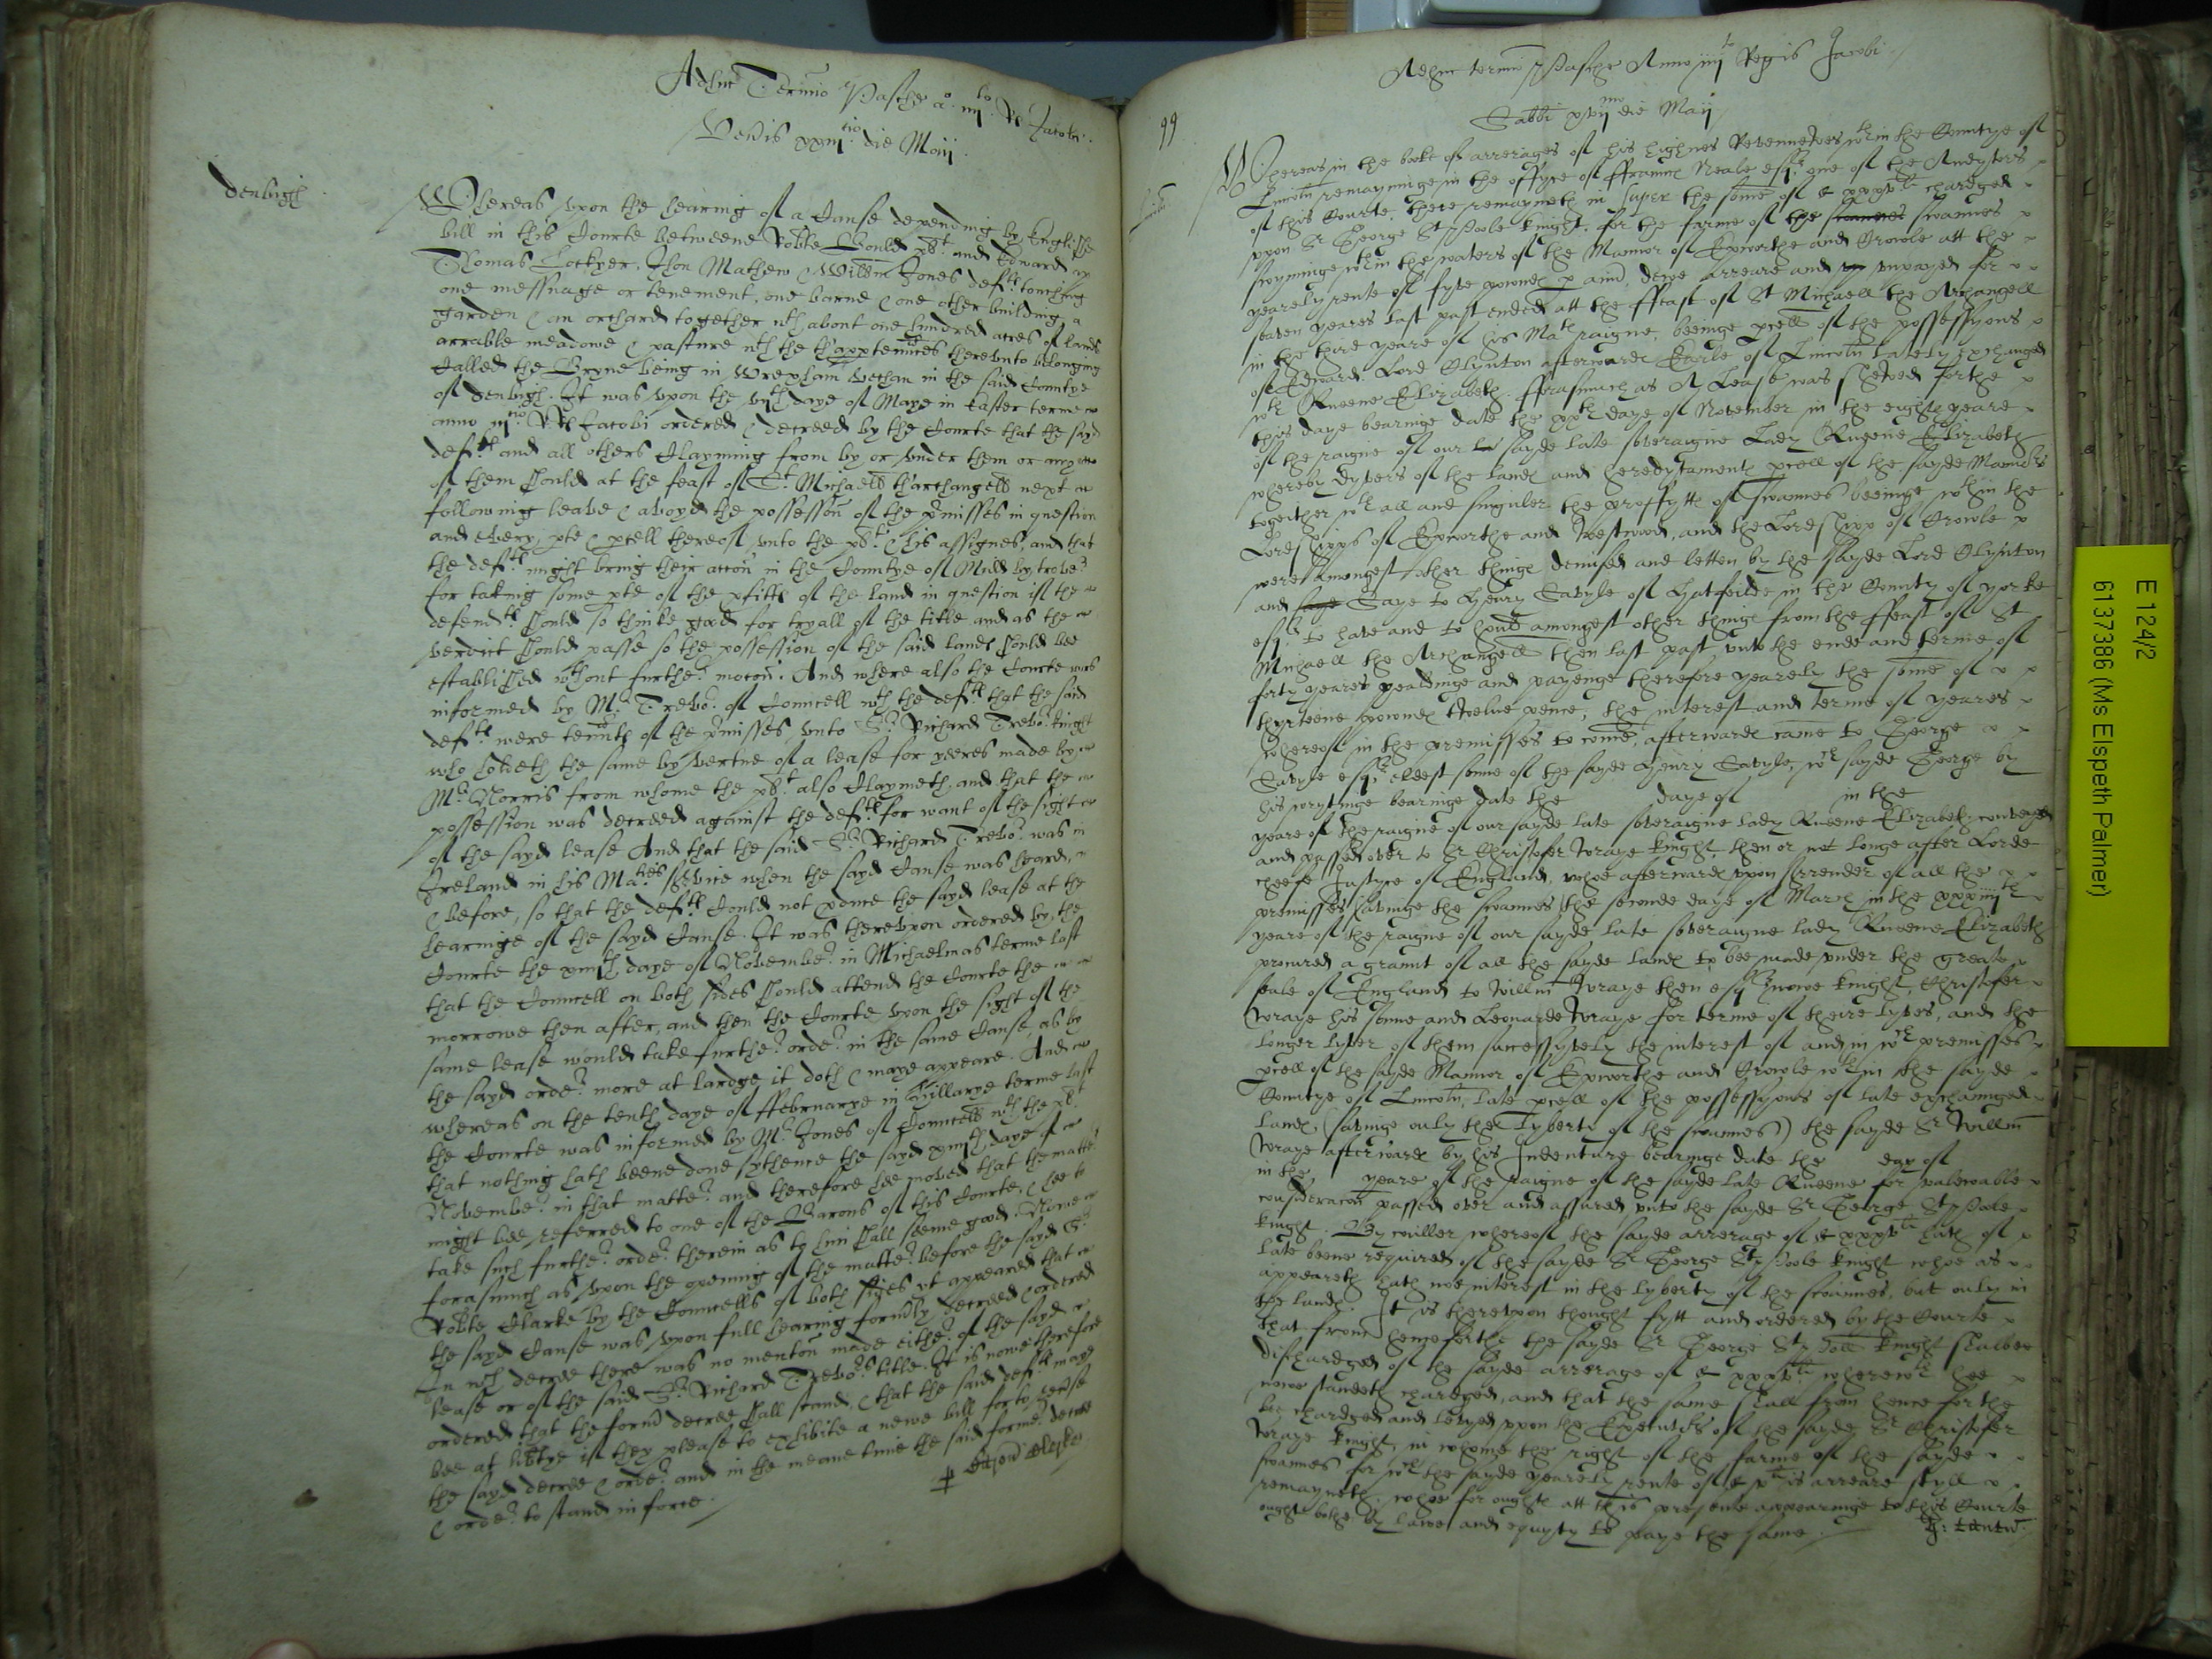 Adhuc Termino Pasche a.o iiij.to R Jacobi
Ven'is xxiij.tio die Maij
denbigh
Whereas vpon the hearing of a Cause depending by Englishe
bill in this Courte betweene Rob'te Gould pl't and Edward
Thomas Lockyer, Jhon Mathew & Will'm Jones def.tes touching
one messuage or tenement, one barne & one other building a
garden & an orchard together w.th about one hundred acres of lande
arrable meadowe & pasture w.th the th'apptennces therevnto belonging
Called the Bryne lieing in Wrexham Vechan in the said Countye
of denbigh. It was vpon the vij.th daye of Maye in Easter terme
anno iij.tio R Jacobi ordered & decreed by the Courte that the sayd
def.tes and all others Clayming from by or vnder them or any
of them should at the feast of S.t Michaell th'archangell next
following leave & avoyd the possession of the p'misses in question
and every p'te & p'cell thereof vnto the pl't & his assignes, and that
the def.tes might bring their acc'on in the Countye of Midd by trover
for taking some p'te of the p'fitts of the land in question if the
defend.tes should so thinke good for tryall of the title and as the
verdict should passe so the possession of the said lands should bee
established w.thout further moc'on. And where also the Courte was
informed by M.r Trevor of Councell w.th the def.tes that the said
def.tes were ten'nts of the p'misses, vnto S.r Richard Trevor knight
who holdeth the same by vertue of a lease for yeeres made by
M.r Norris from whome the pl't also Claymeth, and that the
possession was decreed against the def.tes for want of the sight
of the sayd lease And that the said S.r Richard Trevor was in
Ireland in his Ma.ties service when the sayd Cause was heard,
& before, so that the def.tes Could not p'duce the sayd lease at the
hearinge of the sayd Cause. It was therevpon ordered by the
Courte the xiiij.th daye of November in Michaelmas terme last
that the Councell on both sides should attend the Courte the
morrowe then after, and then the Courte vpon the sight of the
same lease would take further order in the same Cause, as by
the sayd order more at lardge it doth & maye appeare. And
whereas on the tenth daye of ffebruarye in Hillarye terme last
the Courte was informed by M.r Jones of Councell w.th the pl't
that nothing hath beene done sythence the sayd xiiij.th daye of
November in that matter and therefore hee moved that the matter
might bee referred to one of the Barons of this Courte, & hee to
take such further order therein as to him shall seeme good. Nowe
forasmuch as vpon the opening of the matter before the sayd S.r
Rob'te Clarke by the Councells of both sides yt appeared that
the sayd Cause was vpon full hearing form'ly decreed & ordered
In w.ch decree there was no menc'on made either of the sayd
lease or of the said S.r Richard Trevors title. It is nowe therefore
ordered that the form' decree shall stand, & that the said def.tes maye
bee at lib'tye if they please to exhibite a newe bill for to reverse
the sayd decree & order and in the meane time the said former decree
& order to stand in force.
99
Adhuc termino Pasche Anno iiij.to Regis Jacobi
Sabbi xvij.mo die Maij
Whereas in the booke of arrerages of his highnes Revennewes w.thin the Countye of
Lincoln remayninge in the offyce of ffrauncs Neale esq.r one of the Audytors
of this Courte, there remayneth in super the some of £ xxxv.li chardged
vpon S.r George S.t Poole knight, for the farme of the swannes swannes
swymminge w.thin the waters of the Mannor of Epworthe and Crowle att the
yearely rente of fyve pownds p ann', dewe arreare and vnpayed for
seaven yeares last past ended att the ffeast of S.t Michaell the Archangell
in the third yeare of his Ma.ts raigne, beeinge p'cell of the possessyons
of Edward Lord Clynton afterwards Earle of Lincoln lately exchanged
w.th Queene Elizabeth. fforasmuch as A Lease was shewed forthe
this daye bearinge date the xx.th daye of November in the eight yeare
of the raigne of our sayde late soveraigne Lady Queene Elizabeth
whereby dyvers of the lands and heredytaments p'cell of the sayde Mannors
together w.th all and singuler the proffytts of swannes beeinge w.thin the
Lordshipps of Epworthe and Westwood, and the Lordshipp of Crowle
were amongest other things demised and letten by the sayde Lord Clynton
and Saye to Henry Savyle of Hatfeilde in the County of yorke
esq.r to have and to hould amongest other things from the ffeast of S.t
Michaell the Archangell then last past vnto the ende and terme of
forty yeares yealdinge and payenge therefore yearely the some of
thyrteene pownds twelve pence, the interest and terme of yeares
whereof in the premisses to come, afterwards came to George
Savyle esq.r eldest sonne of the sayde Henry Savyle, w.ch sayde George by
his wrytinge bearinge date the daye of in the
yeare of the raigne of our sayde late soveraigne lady Queene Elizabeth conveyed
and passed over to S.r Christofer Wraye knight, then or not longe after Lorde
cheefe Justyce of England, whoe afterwards vpon surrender of all the
premisses savinge the swannes the seconde daye of March in the xxxiij.th
yeare of the raigne of our sayde late soveraigne lady Queene Elizabeth
procured a graunt of all the sayde lands to bee made vnder the greate
seale of England to Will'm Wraye then esq.r nowe knight, Christofer
Wraye his sonne and Leonarde Wraye for terme of theire lyves, and the
longer lyver of them successyvely the interest of and in w.ch premisses
p'cell of the sayde Mannor of Epworthe and Crowle w.thin the sayde
Countye of Lincoln, late p'cell of the possessyons of late exchaunged
lands, (savinge only the Lyberty of the swannes) the sayde S.r Will'm
Wraye afterwards by his Indenture bearinge date the day of
in the yeare of the Raigne of the sayde late Queene for valewable
considerac'on passed over and assured vnto the sayde S.r George S.t Poole
knight. By couller whereof the sayde arrerage of £ xxxv.li hath of
late beene required of the sayde S.r George S.t Poole knight whoe as
appeareth hath noe interest in the lyberty of the swannes, but only in
the lands. It is therevpon thought fytt and ordered by the Courte
that from hencforthe the sayde S.r George S.t Poll knight shalbee
dischardged of the sayde arrerage of £ xxxv.li wherew.th hee
nowe standeth chardged, and that the same shall from hence forthe
bee chardged and levyed vpon the Executors of the sayde S.r Christofer
Wraye knight, in whome the right of the farme of the sayde
swannes for w.ch the sayde yearely rente of £ v.li is arreare styll
remayneth, whoe for ought att this presente appearinge to this Courte
ought bothe by lawe and equyty to paye the same.
E 124/2
6137386 (Ms Elspeth Palmer)